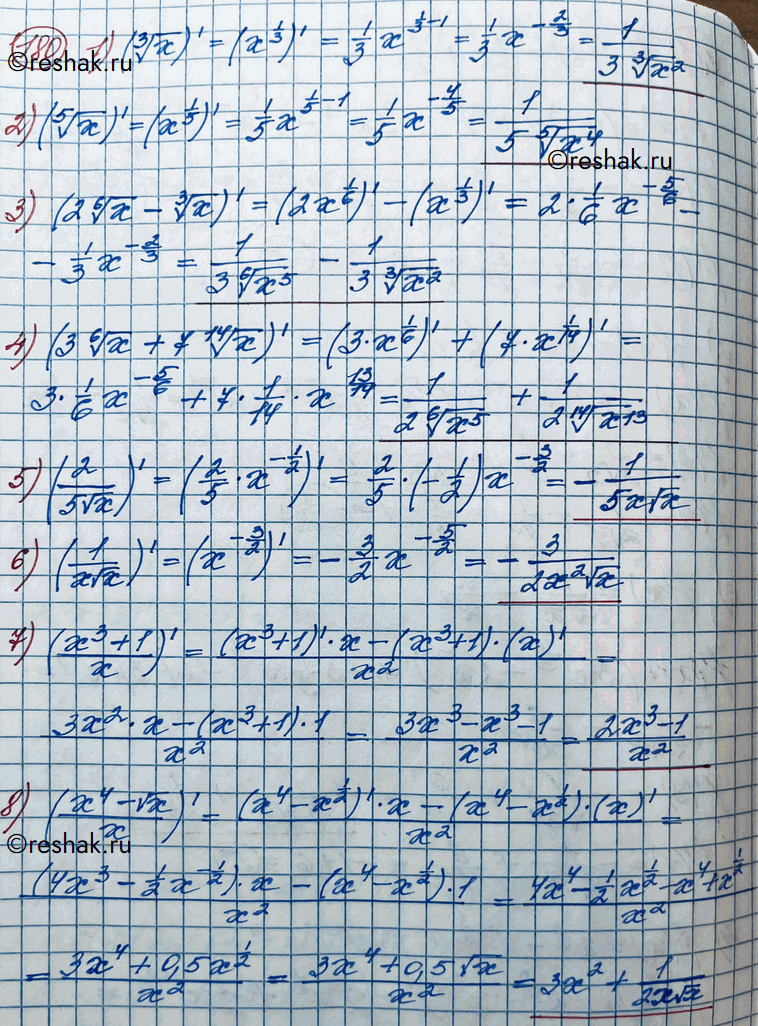 780 1) (∛x)' = (x^{1/3})' = 1/3 x^{1/3-1} = 1/3 x^{-2/3} = 1/(3∛(x²))
©reshak.ru
2) (⁵√x)' = (x^{1/5})' = 1/5 x^{1/5-1} = 1/5 x^{-4/5} = 1/(5 ⁵√(x⁴))
©reshak.ru
3) (2⁶√x - ∛x)' = (2x^{1/6})' - (x^{1/3})' = 2·1/6 x^{-5/6} -
- 1/3 x^{-2/3} = 1/(3⁶√(x⁵)) - 1/(3∛(x²))
4) (3⁶√x + 7 ¹⁴√x)' = (3·x^{1/6})' + (7·x^{1/14})' =
3·1/6 x^{-5/6} + 7·1/14·x^{13/14} = 1/(2⁶√(x⁵)) + 1/(2¹⁴√(x¹³))
5) (2/(5√x))' = (2/5·x^{-1/2})' = 2/5·(-1/2)x^{-3/2} = -1/(5x√x)
6) (1/(x√x))' = (x^{-3/2})' = -3/2 x^{-5/2} = -3/(2x²√x)
7) ((x³+1)/x)' = ((x³+1)'·x-(x³+1)·(x)')/x² =
(3x²·x-(x³+1)·1)/x² = (3x³-x³-1)/x² = (2x³-1)/x²
8) ((x⁴-√x)/x)' = ((x⁴-x^{1/2})'·x-(x⁴-x^{1/2})·(x)')/x² =
©reshak.ru
((4x³-1/2x^{-1/2})·x-(x⁴-x^{1/2})·1)/x² = (4x⁴-1/2x^{1/2}-x⁴+x^{1/2})/x²
= (3x⁴+0,5x^{1/2})/x² = (3x⁴+0,5√x)/x² = 3x² + 1/(2x√x)